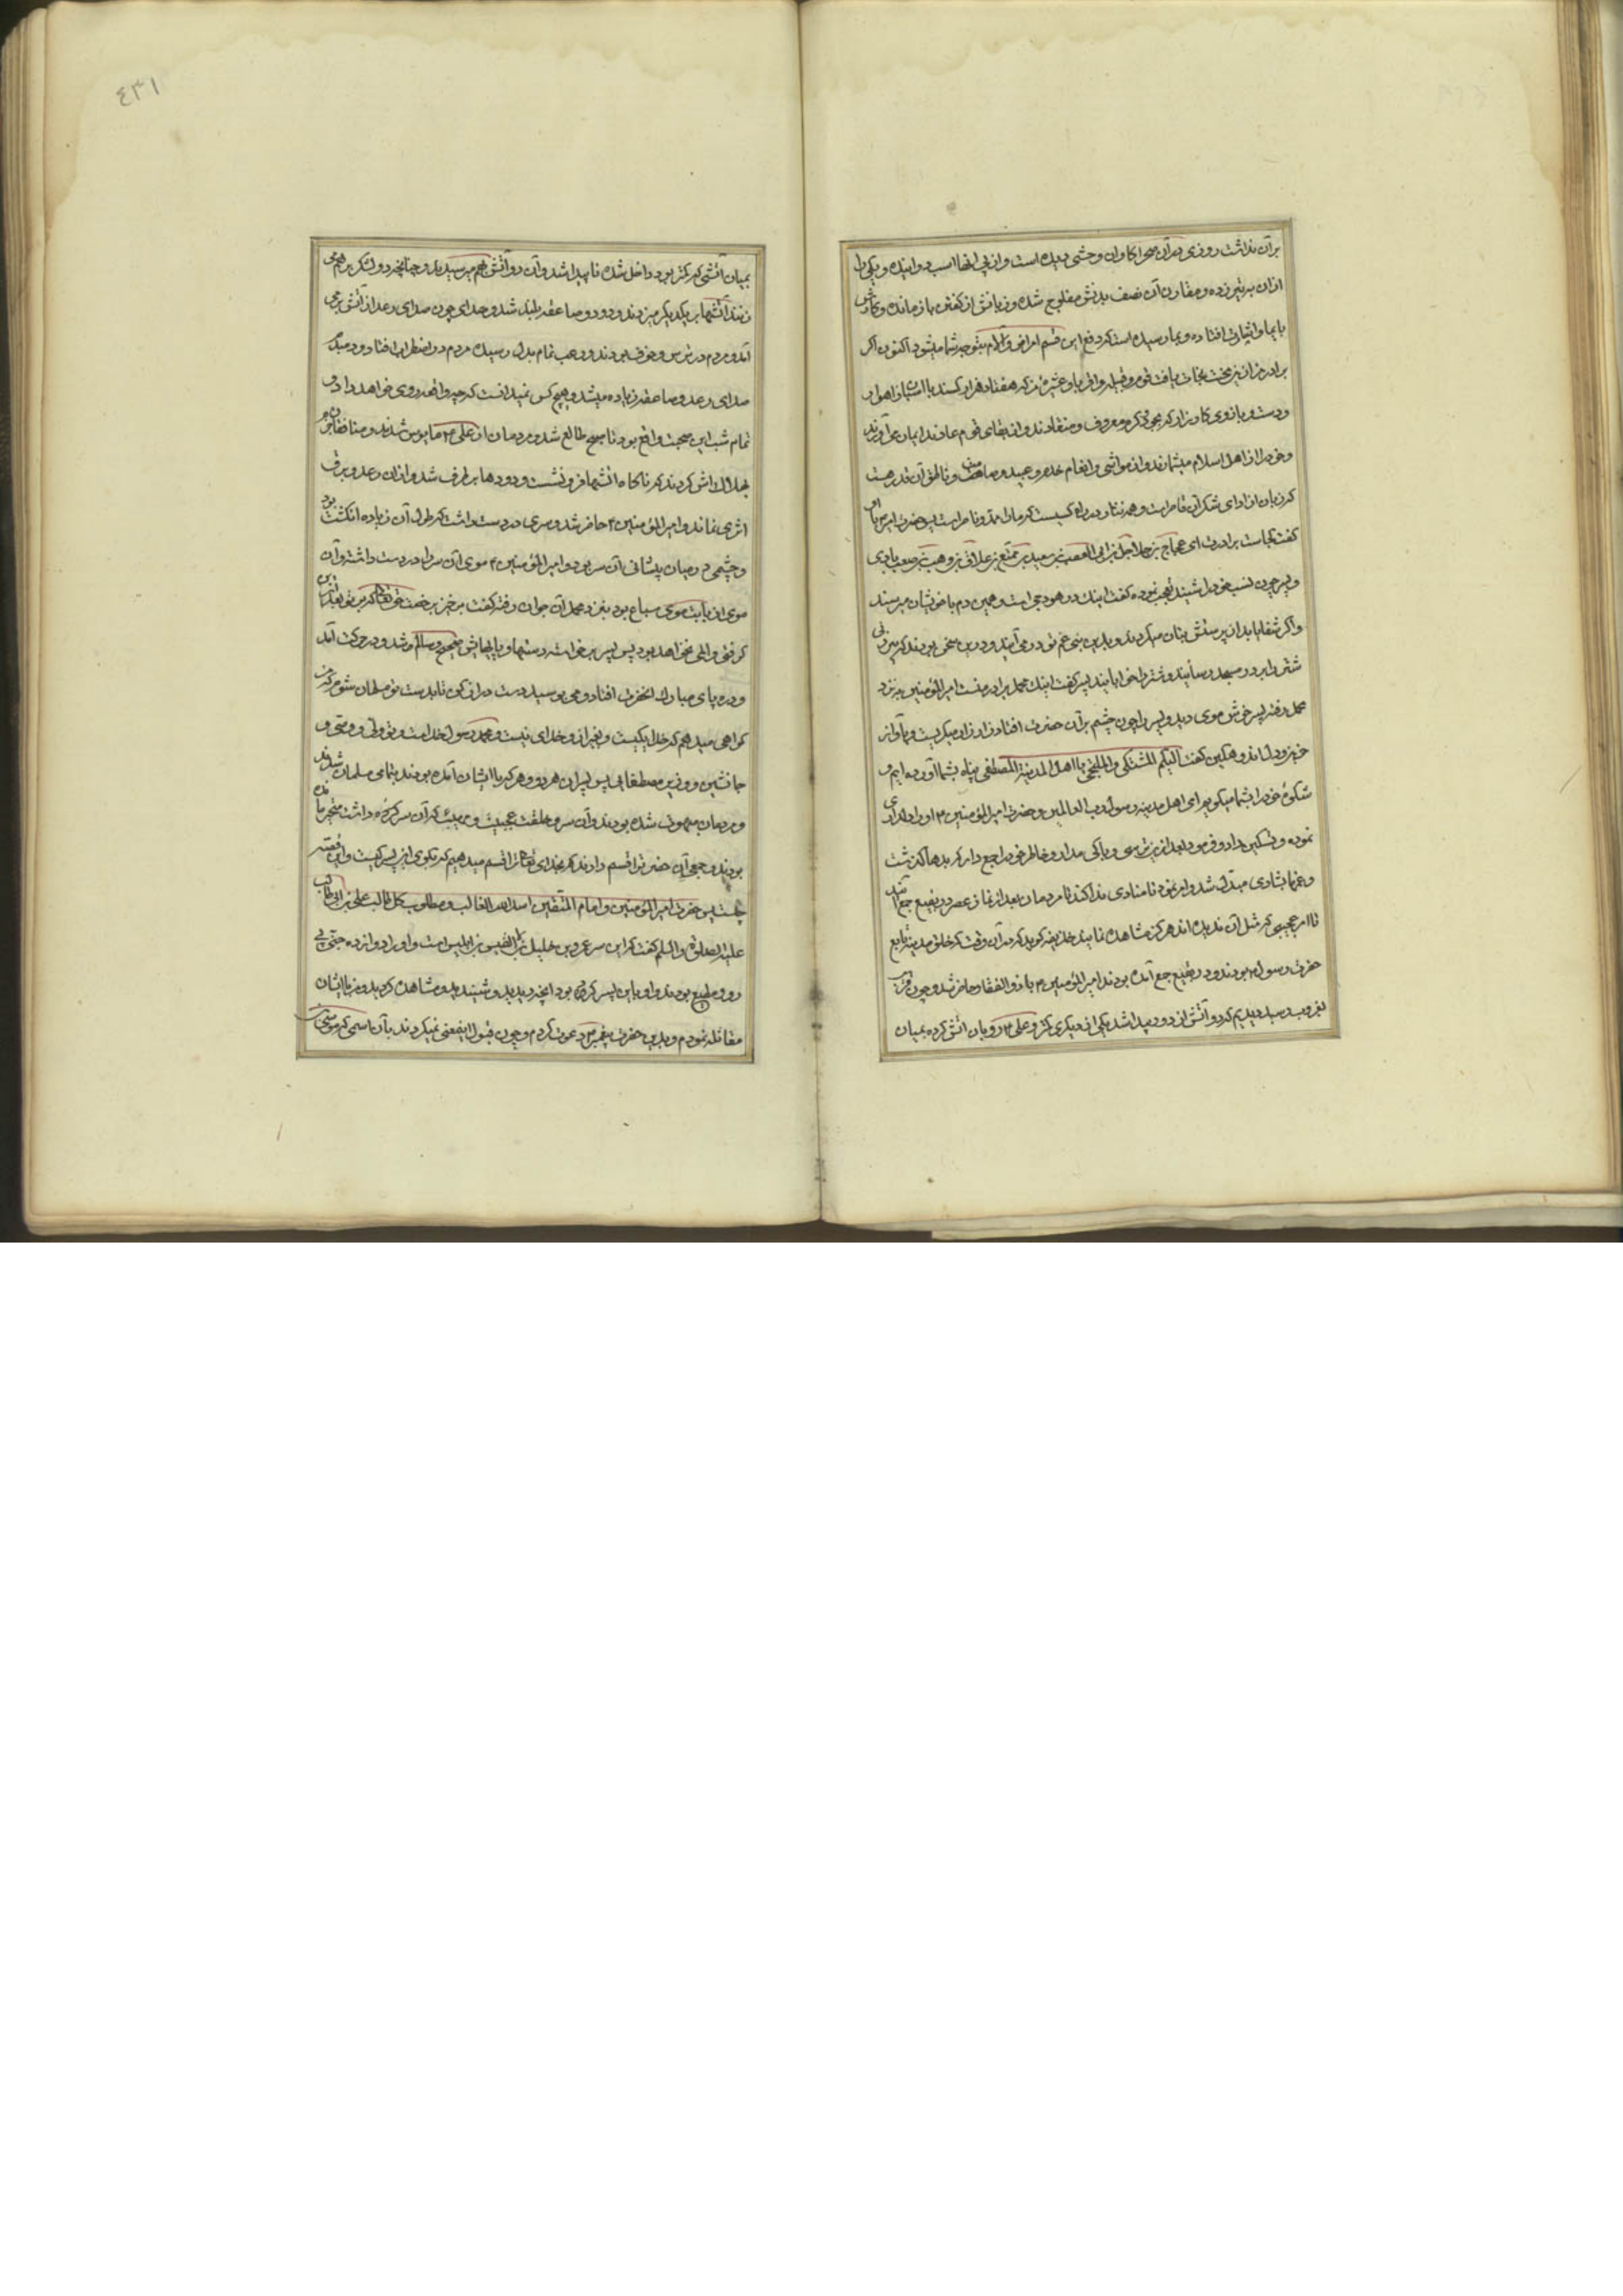 بر آن نداشت روزی در آن صحرا کاوان وحشی دیده است و از پی انها اسب دوانیده و یکی را
ازان به تیر زده و مقارن آن نصف بدنش مفلوج شده و زبانش از کفتن باز مانده و کارش
بایما و اشارت افتاده و بما رسیده است که دفع این قسم امراض و آلام بتوجه شما میشود اکنون اکر
برادر من ازین محنت نجات یافت قوم و قبیله و اقربا و عشیره من که هفتاد هزار کسند با اسبان راهوار
و دست و بازوی کارزار که بجود و کرم معروف و منقادند و از بقایای قوم عادند ایمان می آورند
و خود را از اهل اسلام میشمارند و از مواشی و انعام خدم و عبید و صامت و ناطق آن قدر هست
که زبان از ادای شکر آن قاصر است و همه نثار در راه کسیست که ما را ممد و ناصر است پس حضرت امیر م باو
کفت کجاست برادرت ای عجاج بن حلاحل بن ابی العصب بن سعید بن ممتع بن علاق بن وهب بن صعب بادی
و پسر چون نسب خود را شنید تعجب نموده کفت اینک در هودجی است و همین دم با خویشان میرسند
و اکر شفا یابد از پرستش بتان میکردند و بدین بنی عم تو در می آیند و درین سخن بودند که پیرزنی
شتری را بر در مسجد رسانید و شتر را خوابانید پسر کفت اینک محمل برادر منست امیر المؤمنین به نزد
محمل رفته پسر خوش موی دید و پسر را چون چشم بر آن حضرت افتاد زار زار میکریست و بآواز
حزین و دل اندوهکین کفت الیکم المشتکی و الملتجی یا اهل المدینة المصطفی پناه بشما آورده ایم و
شکوهٔ خود را بشما میکویم ای اهل مدینه رسول رب العالمین و حضرت امیر المؤمنین ۴ او را دلداری
نموده و تسکین داد و فرمود بعد ازین مترس و باکی مدار و خاطر خود را جمع دار که بدها کذشت
و غمها بشادی مبدل شد و امر نمود تا منادی ندا کند تا مردمان بعد از نماز عصر در بقیع جمع آیند
تا امر عجیبی که مثل آن ندیده اند هرکز مشاهده نمایند حذیفه کوید که در آن وقت که خلق مدینه تابع
حضرت رسول ۴ بودند و در بقیع جمع آمده بودند امیر المؤمنین ۴ با ذوالفقار حاضر شد و چون قرب
بغروب رسید دیدیم که دو آتش از دور پیدا شد یکی از دیکری کمتر و علی ۴ رو بان اتش کرده بمیان
٤٣١
بمیان آتشی که کمتر بود داخل شده ناپیدا شد و آن دو آتش بهم میرسیدند و چنانچه دو لشکر بر هم می
زنند آتشها بر یکدیکر میزدند و دود و صاعقه بلند شد و صدای چون صدای رعد از آتش برمی
آمد و مردم در ترس و خوف بودند و رعب تمام بدل رسیده مردم در اضطراب افتاد و دمبدم
صدای رعد و صاعقه زیاده میشد و هیچ کس نمیدانست که چه واقعه روی خواهد داد و
تمام شب این صحبت واقع بود تا صبح طالع شد و مردمان از علی ۴ مایوس شدند و منافقان جزم
بهلاک اش کردند که ناکاه اتشها فرو نشست و دودها بر طرف شد و ازان رعد و برق
اثری نماند و امیر المؤمنین ۴ حاضر شد و سری در دست داشت که طول آن زیاده انکشت بود
و چشمی در میان پیشانی آن سر بود و امیر المؤمنین ۴ موی آن سر را در دست داشته و آن
موی از بابت موی سباع بود بنزد محمل آن جوان رفته کفت برخیز برخصت حق تعالی که بر تو بعد ازین
کرفتی و المی نخواهد بود پس پسر برخاست دستها و پایهایش صحیح و سالم شد و در حرکت آمد
و در پای مبارک انحضرت افتاد و می بوسید دست دراز کن تا بدست تو مسلمان شوم که من
کواهی میدهم که خدا یکیست و بغیر از و خدای نیست و محمد رسول خداست و تو ولی و وصی و
جانشین و وزیر مصطفایی پس پسران هر دو و هر که با ایشان آمده بودند بتمامی مسلمان شدند
و مردمان مبهوت شده بودند و آن سر و خلقت عجیب و هیئت که آن سر کره داشت متحیر مانده
بودند و جمعی آن حضرت را قسم دادند که بخدای تعالی ترا قسم میدهیم که بکوی این سر کیست و این قصه
چیست پس حضرت امیر المؤمنین و امام المتقین اسد الله الغالب و مطلوب کل طالب علی بن ابی طالب
علیه الصلوة و السلم کفت که این سر عمرو بن خلیل بن القیس بن ابلیس است و او را دوازده جنی پی
رو و مطیع بودند و او باین پسر کرده بود انچه دیدید و شنیدید و مشاهده کردید و من با ایشان
مقاتله نمودم و بدین حضرت پیغمبر ۴ دعوت کردم و چون قبول اینمعنی نمیکردند بآن اسمی که موسی